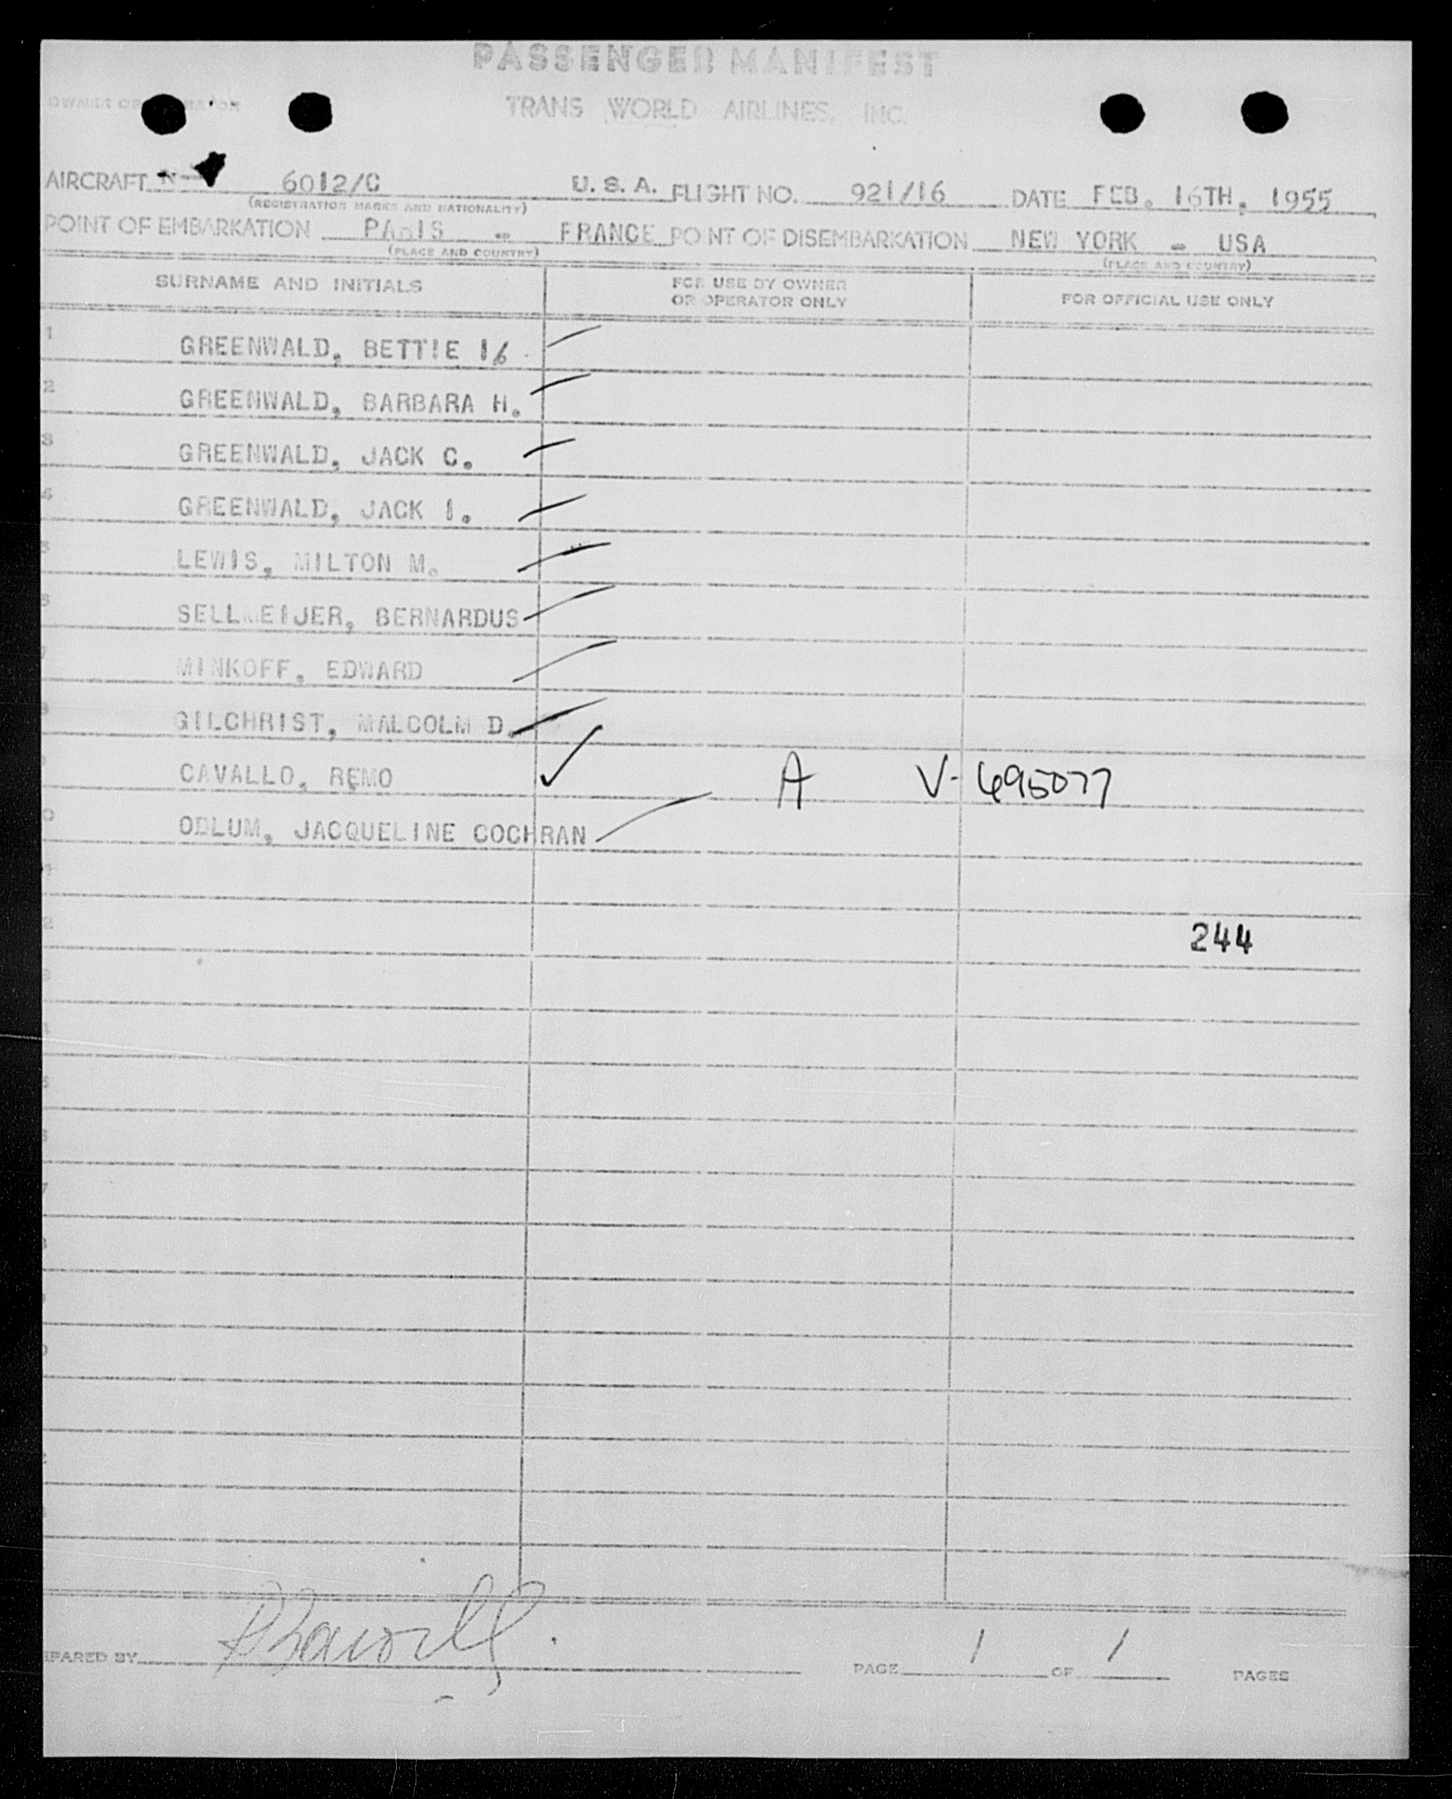 PASSENGER MANIFEST
OWNER OR OPERATOR
TRANS WORLD AIRLINES, INC.
AIRCRAFT N- 6012/C U. S. A. FLIGHT NO. 921/16 DATE FEB. 16TH, 1955
(REGISTRATION MARKS AND NATIONALITY)
POINT OF EMBARKATION PARIS - FRANCE POINT OF DISEMBARKATION NEW YORK - USA
(PLACE AND COUNTRY) (PLACE AND COUNTRY)
SURNAME AND INITIALS FOR USE BY OWNER OR OPERATOR ONLY FOR OFFICIAL USE ONLY
1 GREENWALD, BETTIE
2 GREENWALD, BARBARA H.
3 GREENWALD, JACK C.
4 GREENWALD, JACK I.
5 LEWIS, MILTON M.
6 SELLMEIJER, BERNARDUS
7 MINKOFF, EDWARD
8 GILCHRIST, MALCOLM D.
CAVALLO, REMO ✓ A V-695077
0 ODLUM, JACQUELINE COCHRAN
244
PREPARED BY PAGE 1 OF 1 PAGES